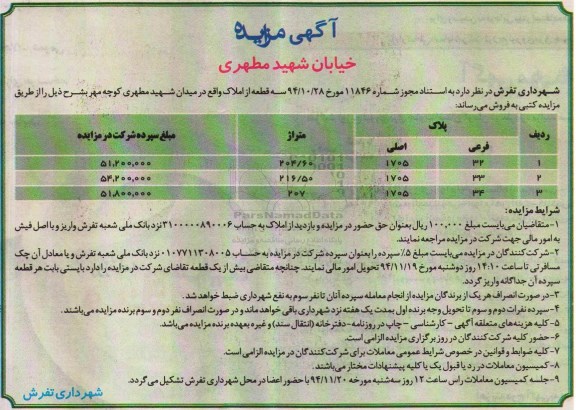 آگهی مزایده
خیابان شهید مطهری
شهرداری تفرش در نظر دارد به استناد مجوز شماره ۱۱۸۴۶ مورخ ۹۴/۱۰/۲۸ سه قطعه از املاک واقع در میدان شهید مطهری کوچه مهر بشرح ذیل را از طریق
مزایده کتبی به فروش می‌رساند:
ردیف پلاک متراژ مبلغ سپرده شرکت در مزایده
فرعی اصلی
۱ ۳۲ ۱۷۰۵ ۲۰۴/۶۰ ۵۱,۲۰۰,۰۰۰
۲ ۳۳ ۱۷۰۵ ۲۱۶/۵۰ ۵۴,۲۰۰,۰۰۰
۳ ۳۴ ۱۷۰۵ ۲۰۷ ۵۱,۸۰۰,۰۰۰
ParsNamadData
شرایط مزایده:
۱-متقاضیان می‌بایست مبلغ ۱۰۰,۰۰۰ ریال بعنوان حق حضور در مزایده و بازدید از املاک به حساب ۳۱۰۰۰۰۰۸۹۰۰۶ نزد بانک ملی شعبه تفرش واریز و با اصل فیش
به امور مالی جهت شرکت در مزایده مراجعه نمایند.
۲-شرکت کنندگان در مزایده می‌بایست مبلغ ۵٪ سپرده را بعنوان سپرده شرکت در مزایده به حساب ۰۱۰۷۷۱۱۳۰۸۰۰۵ نزد بانک ملی شعبه تفرش و یا معادل آن چک
مسافرتی تا ساعت ۱۴:۱۰ روز دوشنبه مورخ ۹۴/۱۱/۱۹ تحویل امور مالی نمایند. چنانچه متقاضی بیش از یک قطعه تقاضای شرکت در مزایده را دارد بایستی بابت هر قطعه
سپرده آن جداگانه واریز گردد.
۳-در صورت انصراف هر یک از برندگان مزایده از انجام معامله سپرده آنان تا نفر سوم به نفع شهرداری ضبط خواهد شد.
۴-سپرده نفرات دوم و سوم تا تحویل وجه برنده اول بمدت یک هفته نزد شهرداری باقی خواهد ماند و در صورت انصراف نفر دوم و سوم برنده مزایده می‌باشند.
۵-کلیه هزینه‌های متعلقه آگهی - کارشناسی - چاپ در روزنامه - دفترخانه (انتقال سند) و غیره بعهده برنده مزایده می‌باشد.
۶-حضور کلیه شرکت کنندگان در روز برگزاری مزایده الزامی است.
۷-کلیه ضوابط و قوانین در خصوص شرایط عمومی معاملات برای شرکت‌کنندگان در مزایده الزامی است.
۸-کمیسیون معاملات در رد یا قبول یک یا کلیه پیشنهادات مختار می‌باشند.
۹-جلسه کمیسیون معاملات راس ساعت ۱۲ روز سه‌شنبه مورخه ۹۴/۱۱/۲۰ با حضور اعضا در محل شهرداری تفرش تشکیل می‌گردد.
شهرداری تفرش